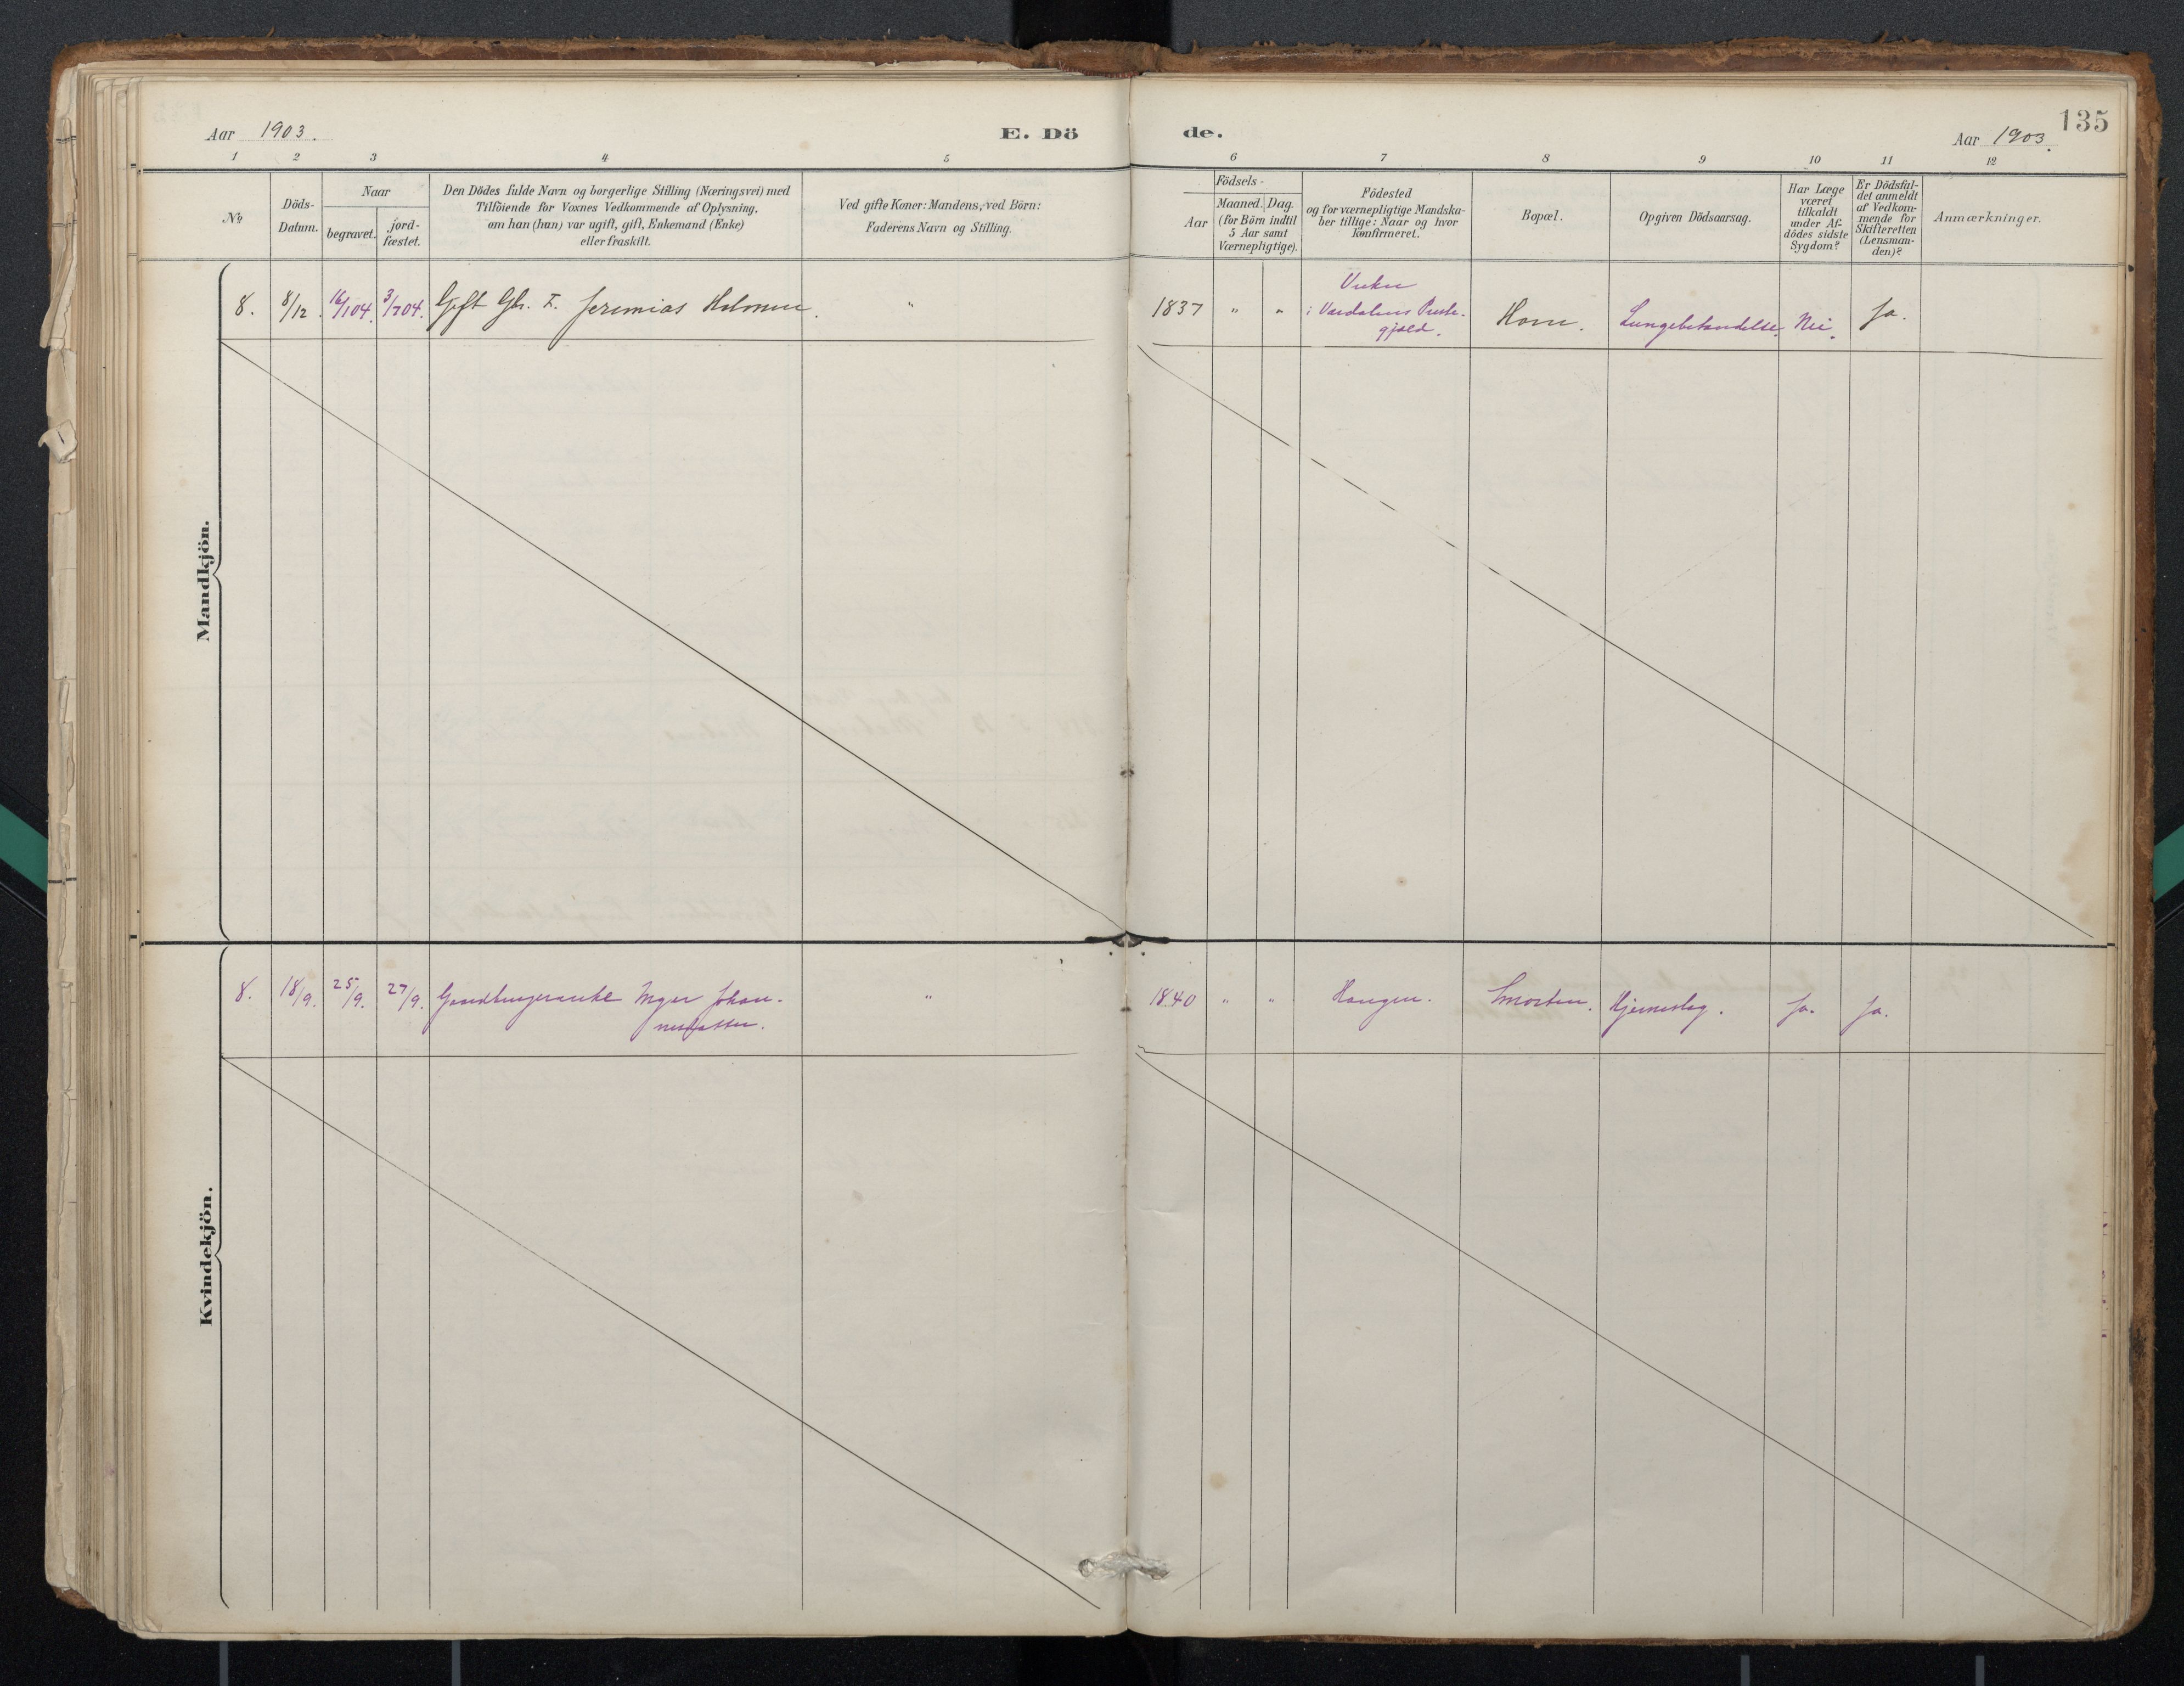 135
Aar 1903.
E. Dö
de.
Aar 1903.
1 2 3 4 5 6 7 8 9 10 11 12
No
Döds-
Datum.
Naar
begravet.
jord-
fæstet.
Den Dödes fulde Navn og borgerlige Stilling (Næringsvei) med
Tilföiende for Voxnes Vedkommende af Oplysning,
om han (hun) var ugift, gift, Enkemand (Enke)
eller fraskilt.
Ved gifte Koner: Mandens, ved Börn:
Faderens Navn og Stilling.
Aar
Födsels-
Maaned. Dag.
(for Börn indtil
5 Aar samt
Værnepligtige).
Födested
og for værnepligtige Mandska-
ber tillige: Naar og hvor
Konfirmeret.
Bopæl.
Opgiven Dödsaarsag.
Har Læge
været
tilkaldt
under Af-
dödes sidste
Sygdom?
Er Dödsfal-
det anmeldt
af Vedkom-
mende for
Skifteretten
(Lensman-
den)?
Anmærkninger.
Mandkjön.
8. 8/12. 16/1 04. 3/7 04. Gift Gbr. F. Jeremias Holmen. " 1837 " " Vuku
i Værdalens Preste-
gjæld. Horn. Lungebetændelse. Nei. Ja.
Kvindekjön.
8. 18/9. 25/9. 27/9. Gaardbrugerenke Inger Johan-
nesdatter. " 1840 " " Haugen. Smorten. Hjerneslag. Ja. Ja.